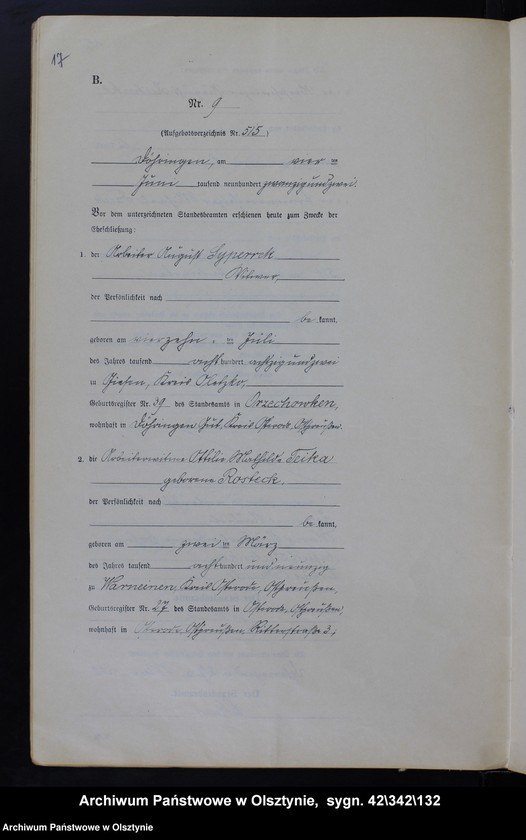 17
B.
Nr. 9
(Aufgebotsverzeichnis Nr. 5/5)
Döhringen, am vier ten
Juni tausend neunhundert zwanzigundzwei.
Vor dem unterzeichneten Standesbeamten erschienen heute zum Zwecke der
Eheschließung:
1. der Arbeiter August
Witwer,
der Persönlichkeit nach
be kannt,
geboren am vierzehn ten Juli
des Jahres tausend acht hundert achtzigundzwei
zu Giesen, Kreis Oletzko,
Geburtsregister Nr. 39 des Standesamts in Orzechowken,
wohnhaft in Döhringen Gut, Kreis Osterode, Ostpreußen.
2. die Arbeiterwitwe Ottilie Mathilde
geborene Rosteck.
der Persönlichkeit nach
be kannt,
geboren am zwei ten März
des Jahres tausend acht hundert undneunzig
zu Warneinen, Kreis Osterode, Ostpreußen,
Geburtsregister Nr. 27 des Standesamts in Osterode, Ostpreußen,
wohnhaft in Osterode, Ostpreußen, Ritterstraße 3,
Archiwum Państwowe w Olsztynie, sygn. 42\342\132
Archiwum Państwowe w Olsztynie